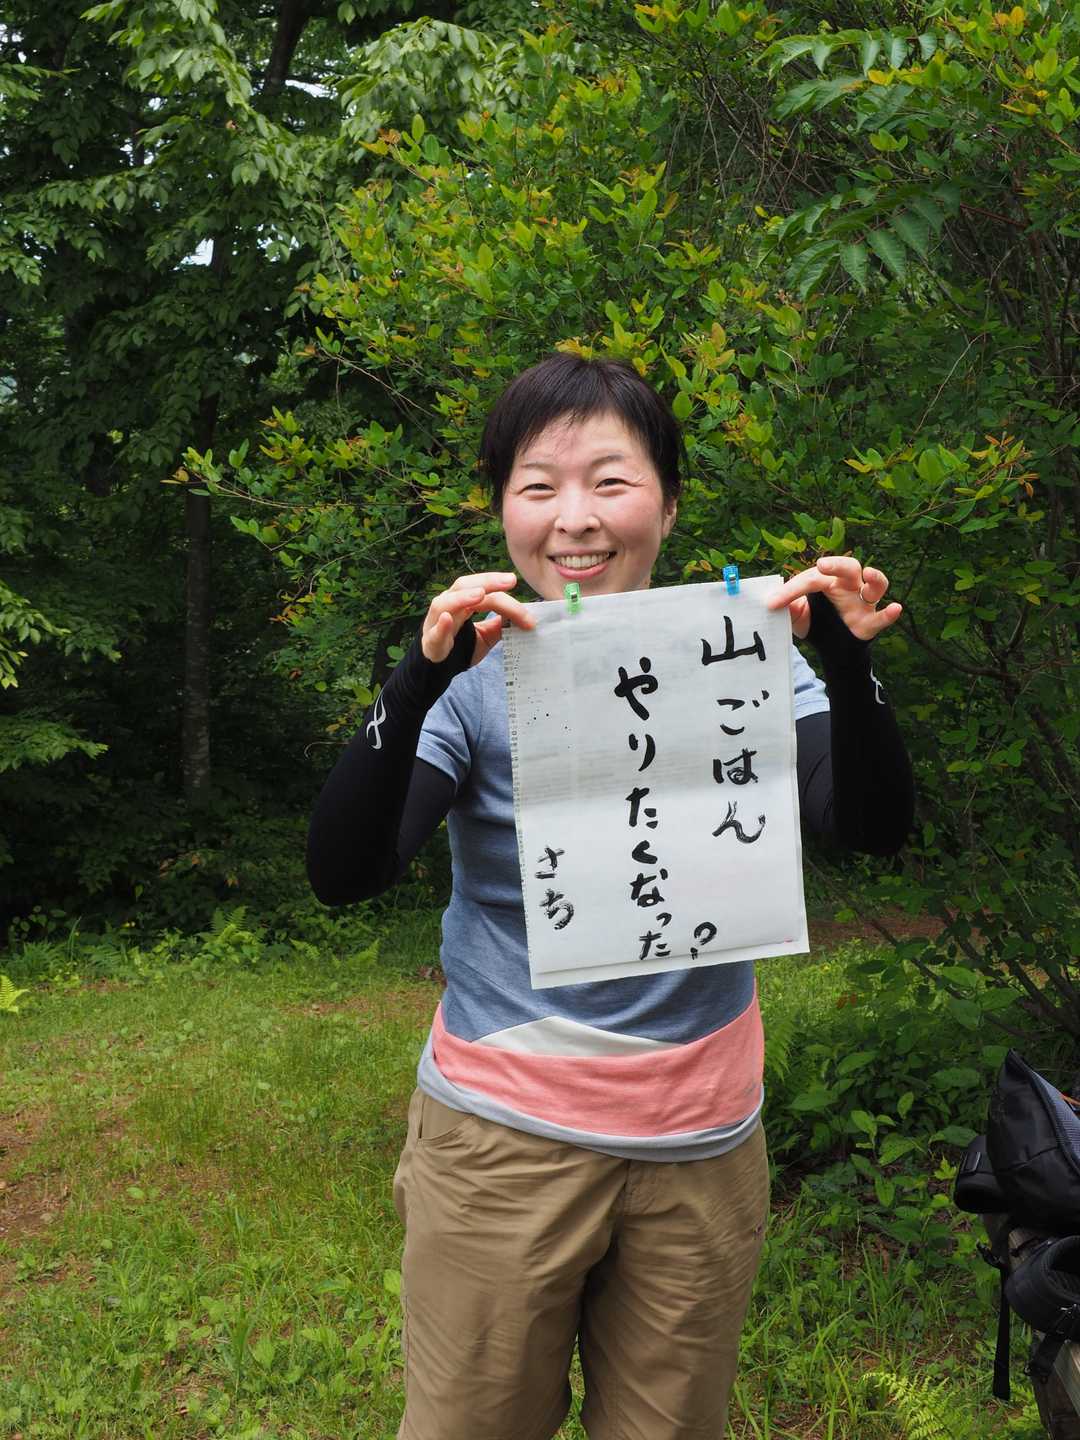 山ごはん
やりたくなった?
さち